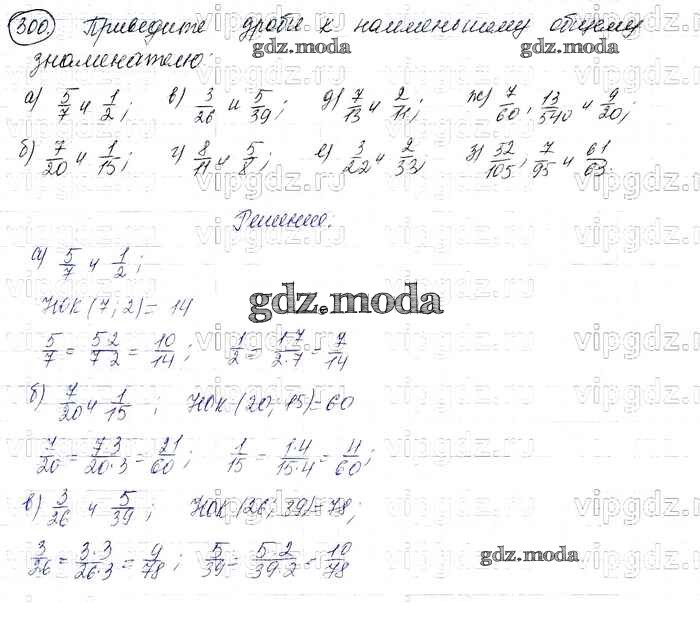 300. Приведите дроби к наименьшему общему
знаменателю:
а) 5/7 и 1/2; в) 3/26 и 5/39; д) 7/13 и 2/11; ж) 7/60, 13/540 и 9/20;
б) 7/20 и 1/15; г) 8/11 и 5/8; е) 3/22 и 2/33; з) 32/105, 7/95 и 61/63.
Решение.
а) 5/7 и 1/2;
НОК (7; 2) = 14
5/7 = 5·2/7·2 = 10/14; 1/2 = 1·7/2·7 = 7/14
б) 7/20 и 1/15; НОК (20; 15) = 60
7/20 = 7·3/20·3 = 21/60; 1/15 = 1·4/15·4 = 4/60;
в) 3/26 и 5/39; НОК (26; 39) = 78;
3/26 = 3·3/26·3 = 9/78; 5/39 = 5·2/39·2 = 10/78
gdz.moda
vipgdz.ru